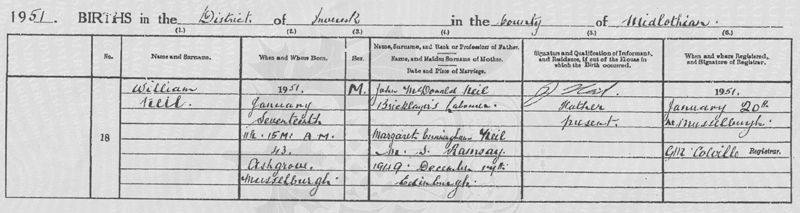 1951. BIRTHS in the District of Inveresk in the County of Midlothian.
(1.) (2.) (3.) (4.) (5.) (6.)
No.
Name and Surname.
When and Where Born.
Sex.
Name, Surname, and Rank or Profession of Father.
Name, and Maiden Surname of Mother.
Date and Place of Marriage.
Signature and Qualification of Informant,
and Residence, if out of the House in
which the Birth occurred.
When and where Registered,
and Signature of Registrar.
18
William
Neil
1951.
January
Seventeenth
15 M. A.M.
43.
Ashgrove.
Musselburgh
M.
John McDonald Neil
Bricklayer's Labourer
Margaret Cunningham Neil
M. S. Ramsay
1949. December
Edinburgh.
J Neil
Father
present.
1951.
January 20th
At Musselburgh.
GM Colville Registrar.